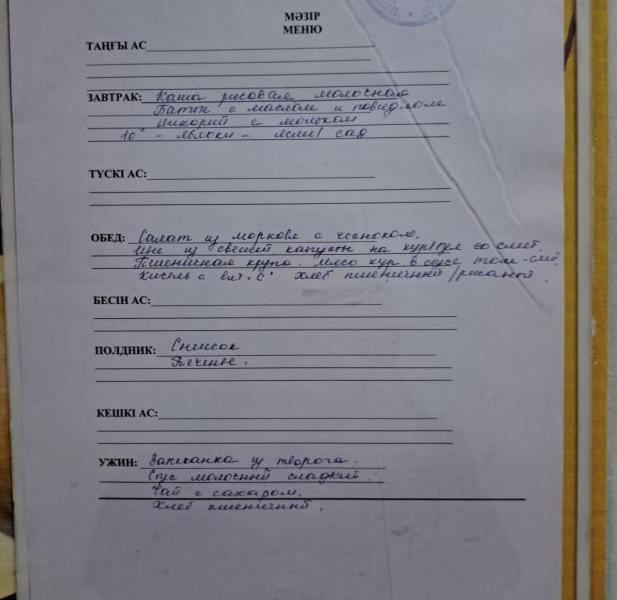 МӘЗІР
МЕНЮ
ТАҢҒЫ АС
ЗАВТРАК: Каша рисовая молочная
Батон с маслом и повидлом
Цикорий с молоком
10° - яблоки - ясли/сад
ТҮСКІ АС:
ОБЕД: Салат из моркови с чесноком.
Щи из свежей капусты на кур/бул со смет.
Пшеничная крупа. мясо кур в соусе том-см.
Кисель с вит. С. хлеб пшеничный/ржаной
БЕСІН АС:
ПОЛДНИК: Снежок
Печенье.
КЕШКІ АС:
УЖИН: Запеканка из творога.
Соус молочный сладкий.
Чай с сахаром.
Хлеб пшеничный.